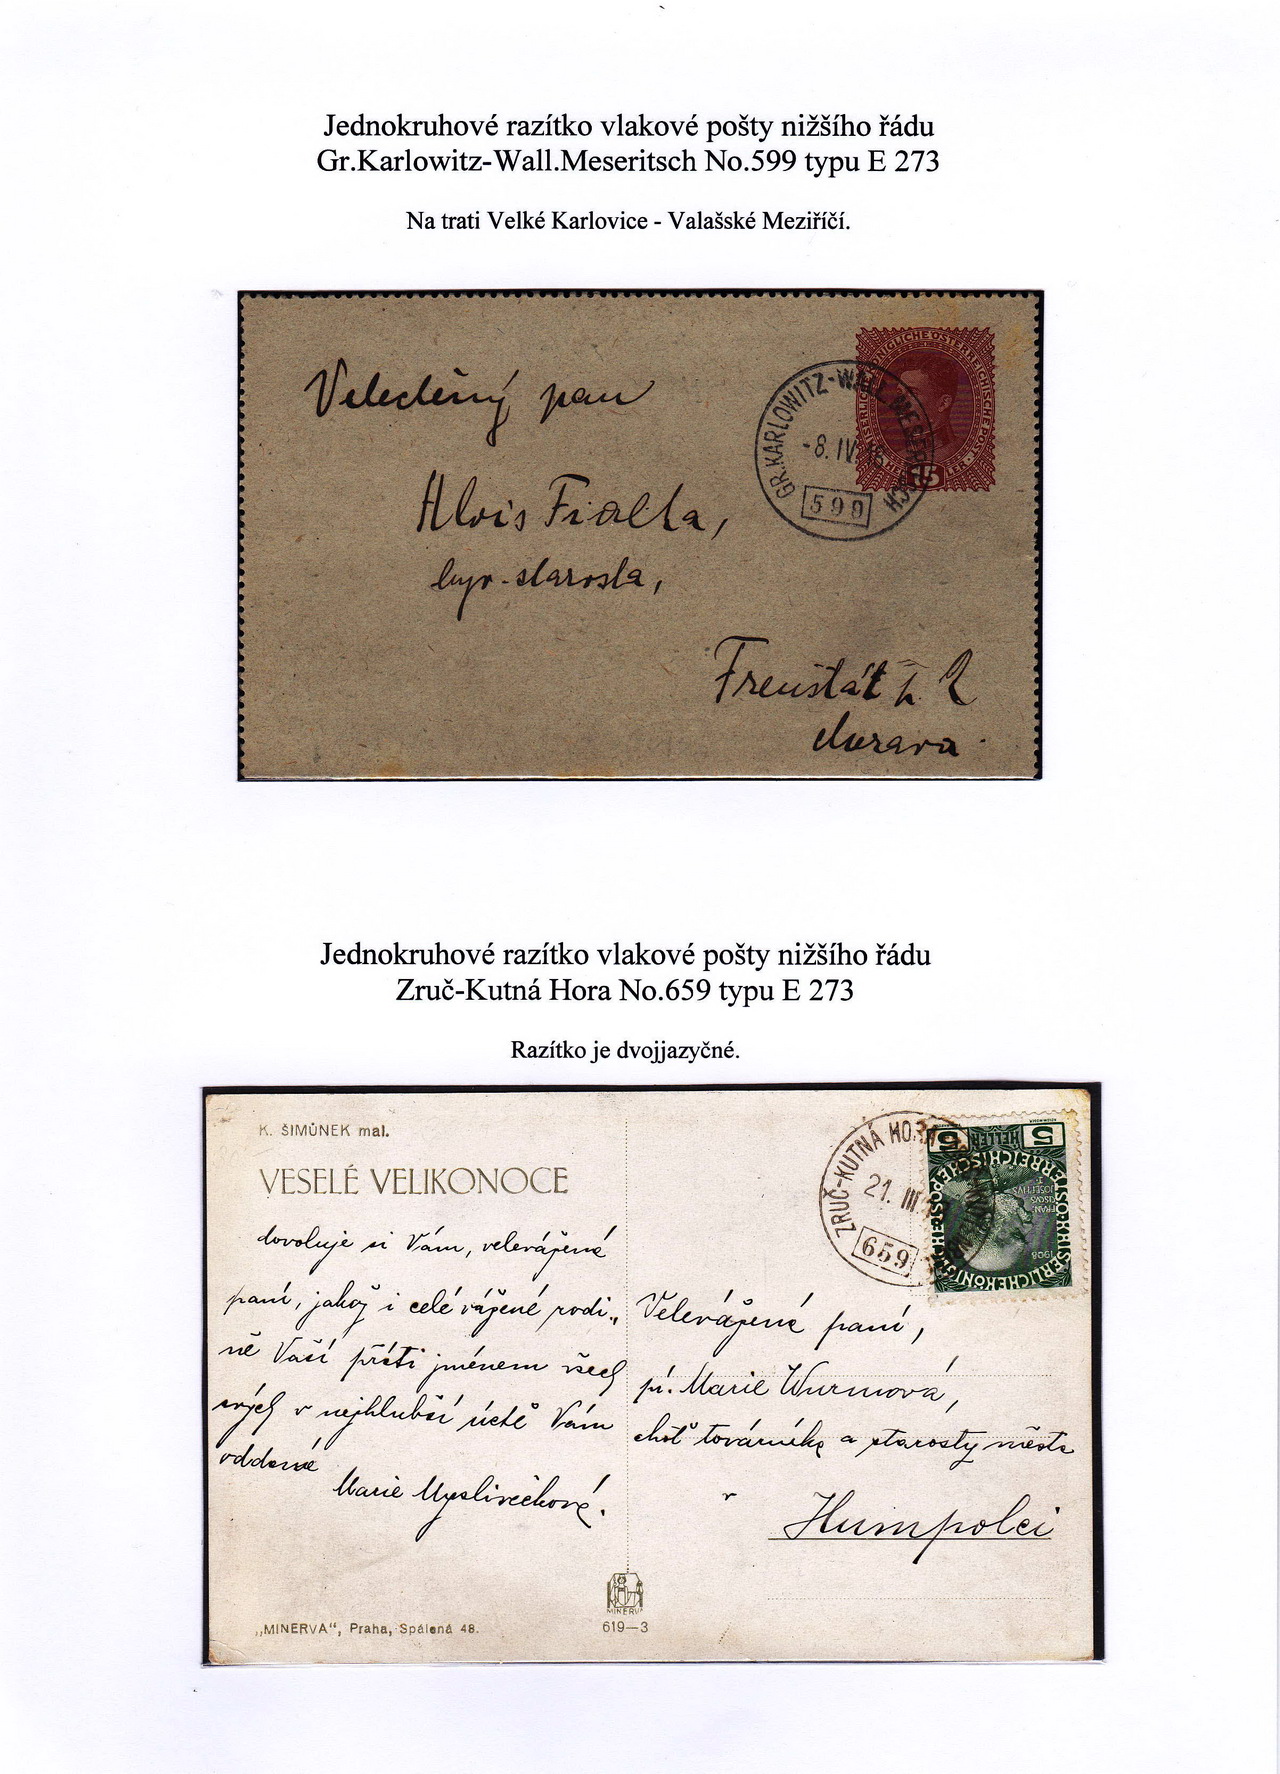 Jednokruhové razítko vlakové pošty nižšího řádu
Gr.Karlowitz-Wall.Meseritsch No.599 typu E 273
Na trati Velké Karlovice - Valašské Meziříčí.
GR.KARLOWITZ-WALL.MESERITSCH
-8.IV
599
15
pan
Alois Fialla,
starosta,
Frenštát
Morava
Jednokruhové razítko vlakové pošty nižšího řádu
Zruč-Kutná Hora No.659 typu E 273
Razítko je dvojjazyčné.
K. ŠIMŮNEK mal.
VESELÉ VELIKONOCE
ZRUČ-KUTNÁ HORA
21. III
659
5 HELLER 5
1908
dovoluje si Vám, velevážená
paní, jakož i celé vážené rodi„
ně Vaší přáti jménem všech
svých v nejhlubší úctě Vám
oddaná
Marie Myslivečková.
Velevážená paní,
pí. Marie Wurmová,
choť továrníka a starosty města
v
Humpolci
MINERVA
619—3
„MINERVA“, Praha, Spálená 48.